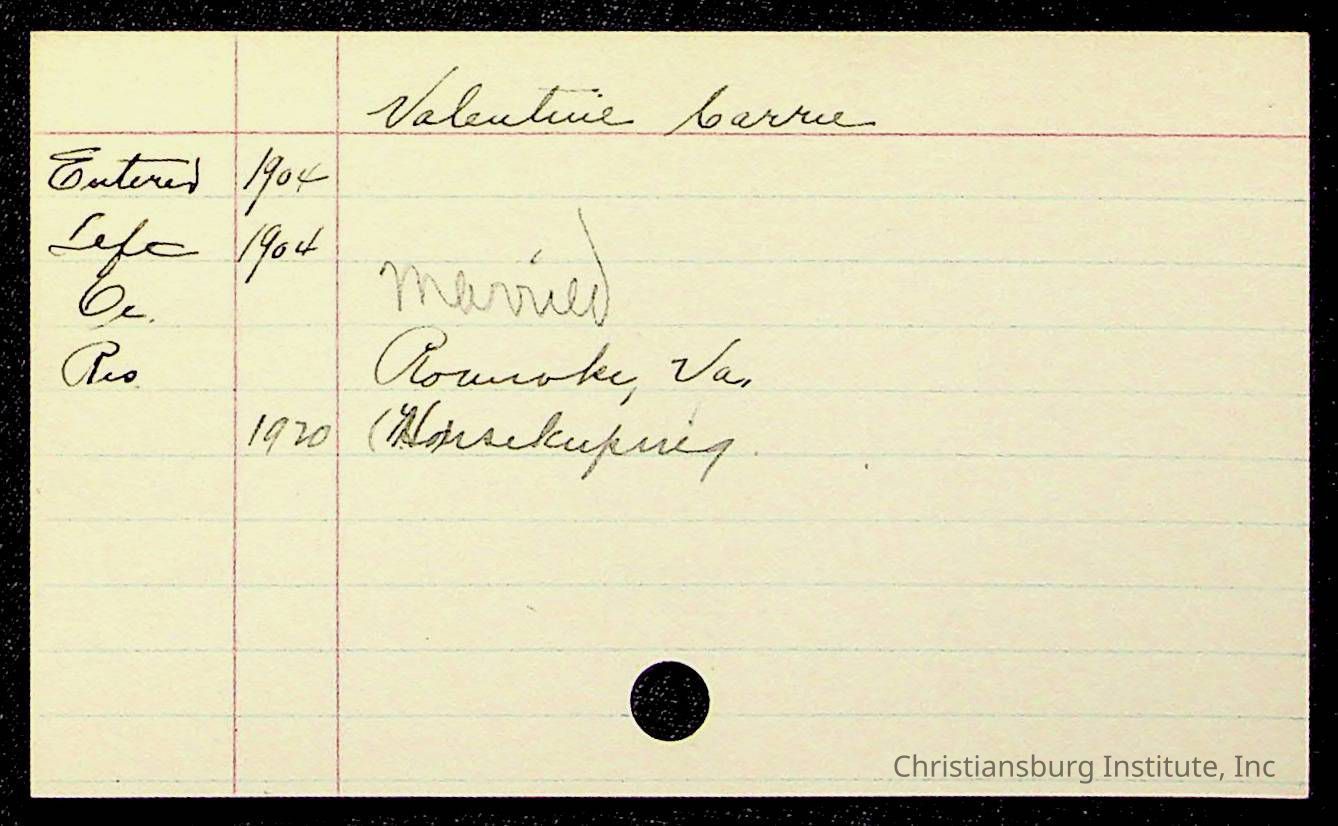 Valentine Carrie
Entered 1904
Left 1904
Oc. Married
Res Roanoke, Va.
1920 (Housekeeping
Christiansburg Institute, Inc